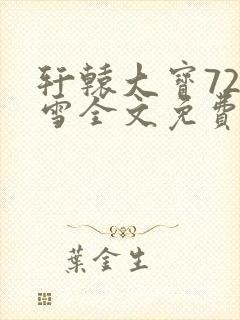 轩辕大宝72
雪全文免費
葉金生